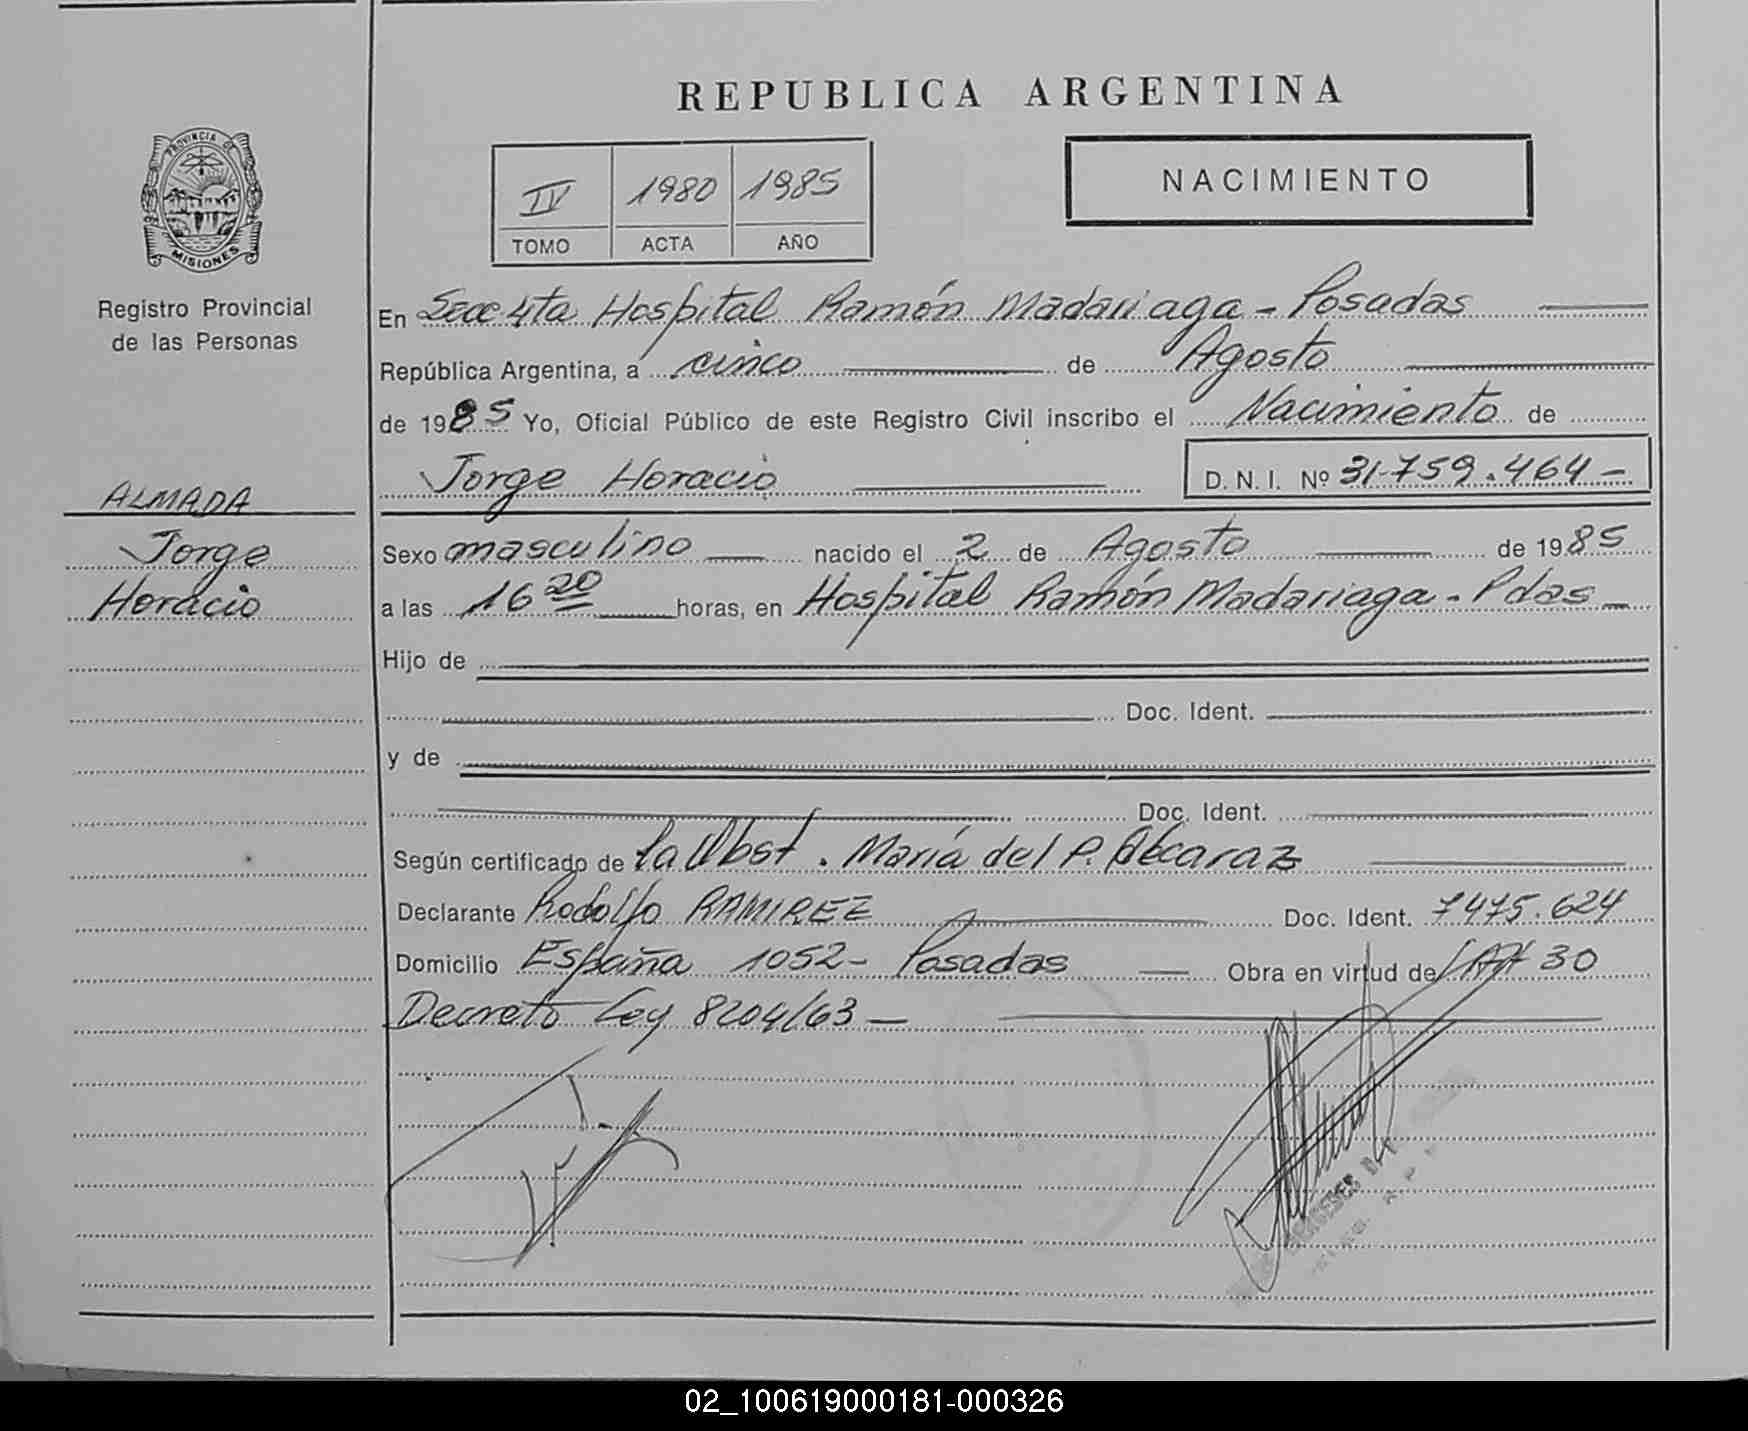 REPUBLICA ARGENTINA
PROVINCIA DE
MISIONES
Registro Provincial
de las Personas
IV 1980 1985
TOMO ACTA AÑO
NACIMIENTO
En Secc 4ta Hospital Ramón Madariaga - Posadas
República Argentina, a cinco de Agosto
de 1985 Yo, Oficial Público de este Registro Civil inscribo el Nacimiento de
Jorge Horacio D. N. I. Nº 31.759.464-
ALMADA
Jorge
Horacio
Sexo masculino nacido el 2 de Agosto de 1985
a las 16 20 horas, en Hospital Ramón Madariaga - Pdas
Hijo de
Doc. Ident.
y de
Doc. Ident.
Según certificado de la Obst. María del P. Alcaraz
Declarante Rodolfo RAMIREZ Doc. Ident. 7475.624
Domicilio España 1052 - Posadas Obra en virtud de Art 30
Decreto Ley 8204/63 -
02_100619000181-000326